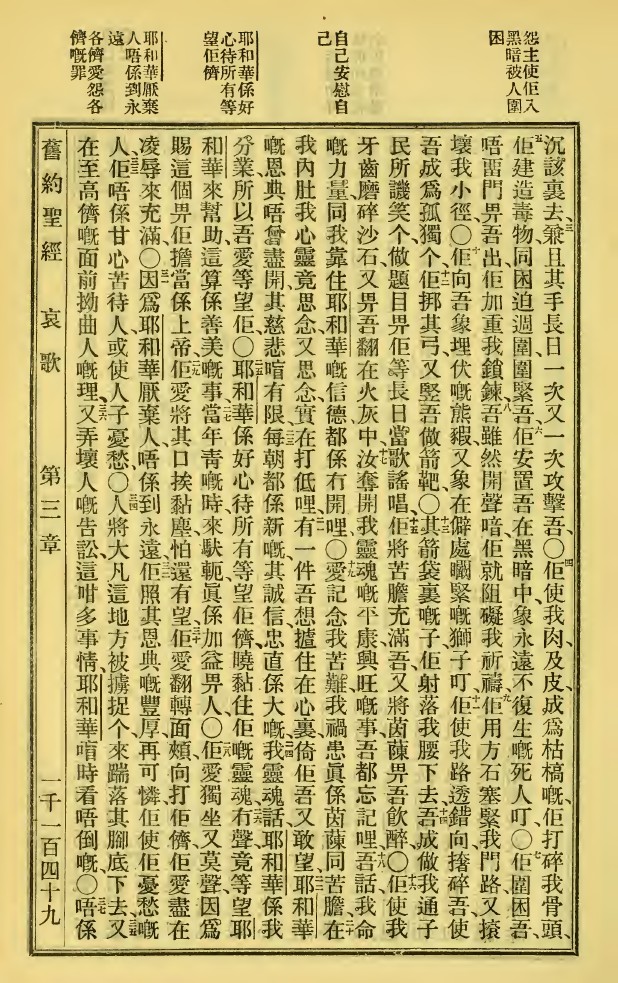 怨主使佢入
黑暗被人圍
困
自己安慰自
己
耶和華係好
心待所有等
望佢儕
耶和華厭棄
人唔係到永
遠
各儕愛怨各
儕嘅罪
沉該裏去、三兼且其手長日一次又一次攻擊吾、〇四佢使我肉及皮、成爲枯槁嘅、佢打碎我骨頭、
五佢建造毒物同困迫週圍圍緊吾、六佢安置吾在黑暗中、象永遠不復生嘅死人叮、〇七佢圍困吾、
唔畱門畀吾出、佢加重我鎖鍊、八吾雖然開聲喑、佢就阻礙我祈禱、九佢用方石塞緊我門路、又
壞我小徑、〇十佢向吾象埋伏嘅熊猳、又象在僻處嘅獅子叮、十一佢使我路透錯、向撦碎吾、使
吾成爲孤獨個、十二佢挷其弓、又竪吾做箭靶、〇十三其箭袋裏嘅子、佢射落我腰下去、十四吾成做我通子
民所譏笑个、做題目畀佢等長日當歌謠唱、十五佢將苦膽充滿吾、又將茵蔯畀吾飲醉、〇十六佢使我
牙齒磨碎沙石、又畀吾翻在火灰中、十七汝奪開我靈魂嘅平康、興旺嘅事吾都忘記哩、十八吾話、我命
嘅力量、同我靠住耶和華嘅信德、都係冇開哩、〇十九愛記念我苦難我禍患、眞係茵蔯同苦膽、二十在
我內肚我心靈竟思念、又思念實在打低哩、二一有一件吾想揸住在心裏、倚佢吾又敢望、二二耶和華
嘅恩典唔曾盡開、其慈悲喑有限、二三每朝都係新嘅、其誠信忠直係大嘅、二四我靈魂話、耶和華係我
分業、所以吾愛等望佢、〇二五耶和華係好心待所有等望佢儕、曉黏住佢嘅靈魂、二六有聲竟等望耶
和華來幫助、這算係善美嘅事、二七當年靑嘅時來馱軛、眞係加益畀人、〇二八佢愛獨坐又莫聲、因爲
賜這個畀佢擔當係上帝、二九佢愛將其口挨黏塵、怕還有望、三十佢愛翻轉面頰、向打佢儕、佢愛盡在
凌辱來充滿、〇三一因爲耶和華厭棄人、唔係到永遠、三二佢照其恩典嘅豐厚、再可憐佢使佢憂愁嘅
人、三三佢唔係甘心苦待人、或使人子憂愁、〇三四人將大凡這地方被擄捉个、來踹落其腳底下去、三五又
在至高儕嘅面前、拗曲人嘅理、三六又弄壞人嘅告訟、這咁多事情、耶和華喑時看唔倒嘅、〇三七唔係
舊約聖經 哀歌 第三章 一千一百四十九